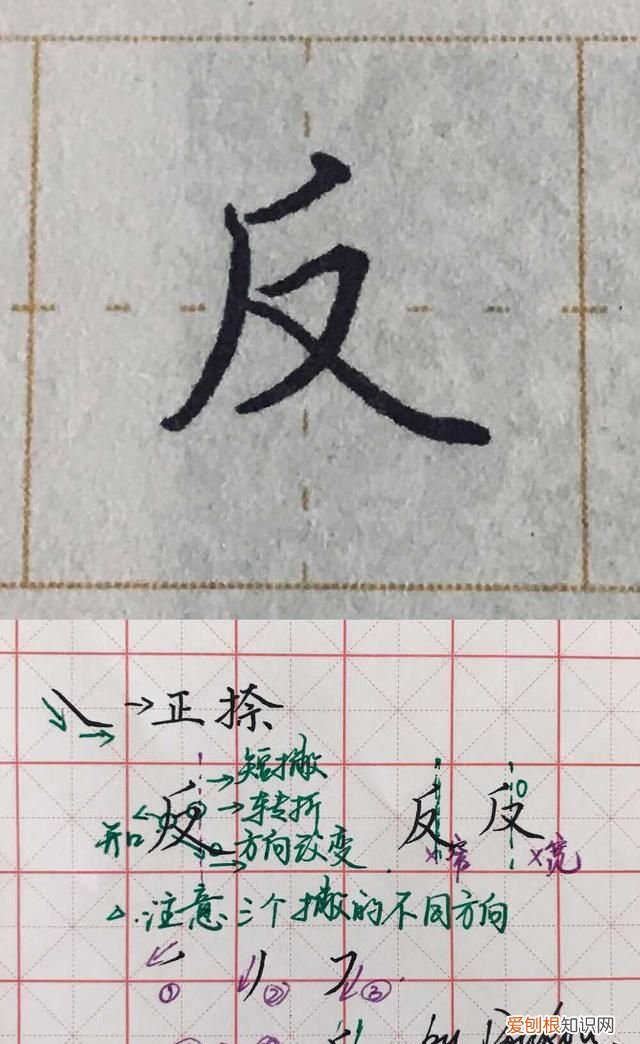 反
正捺
短撇
反 转折 反 反
开口 方向改变 ×窄 ×宽
△.注意三个撇的不同方向
① ② ③
by
爱刨根知识网